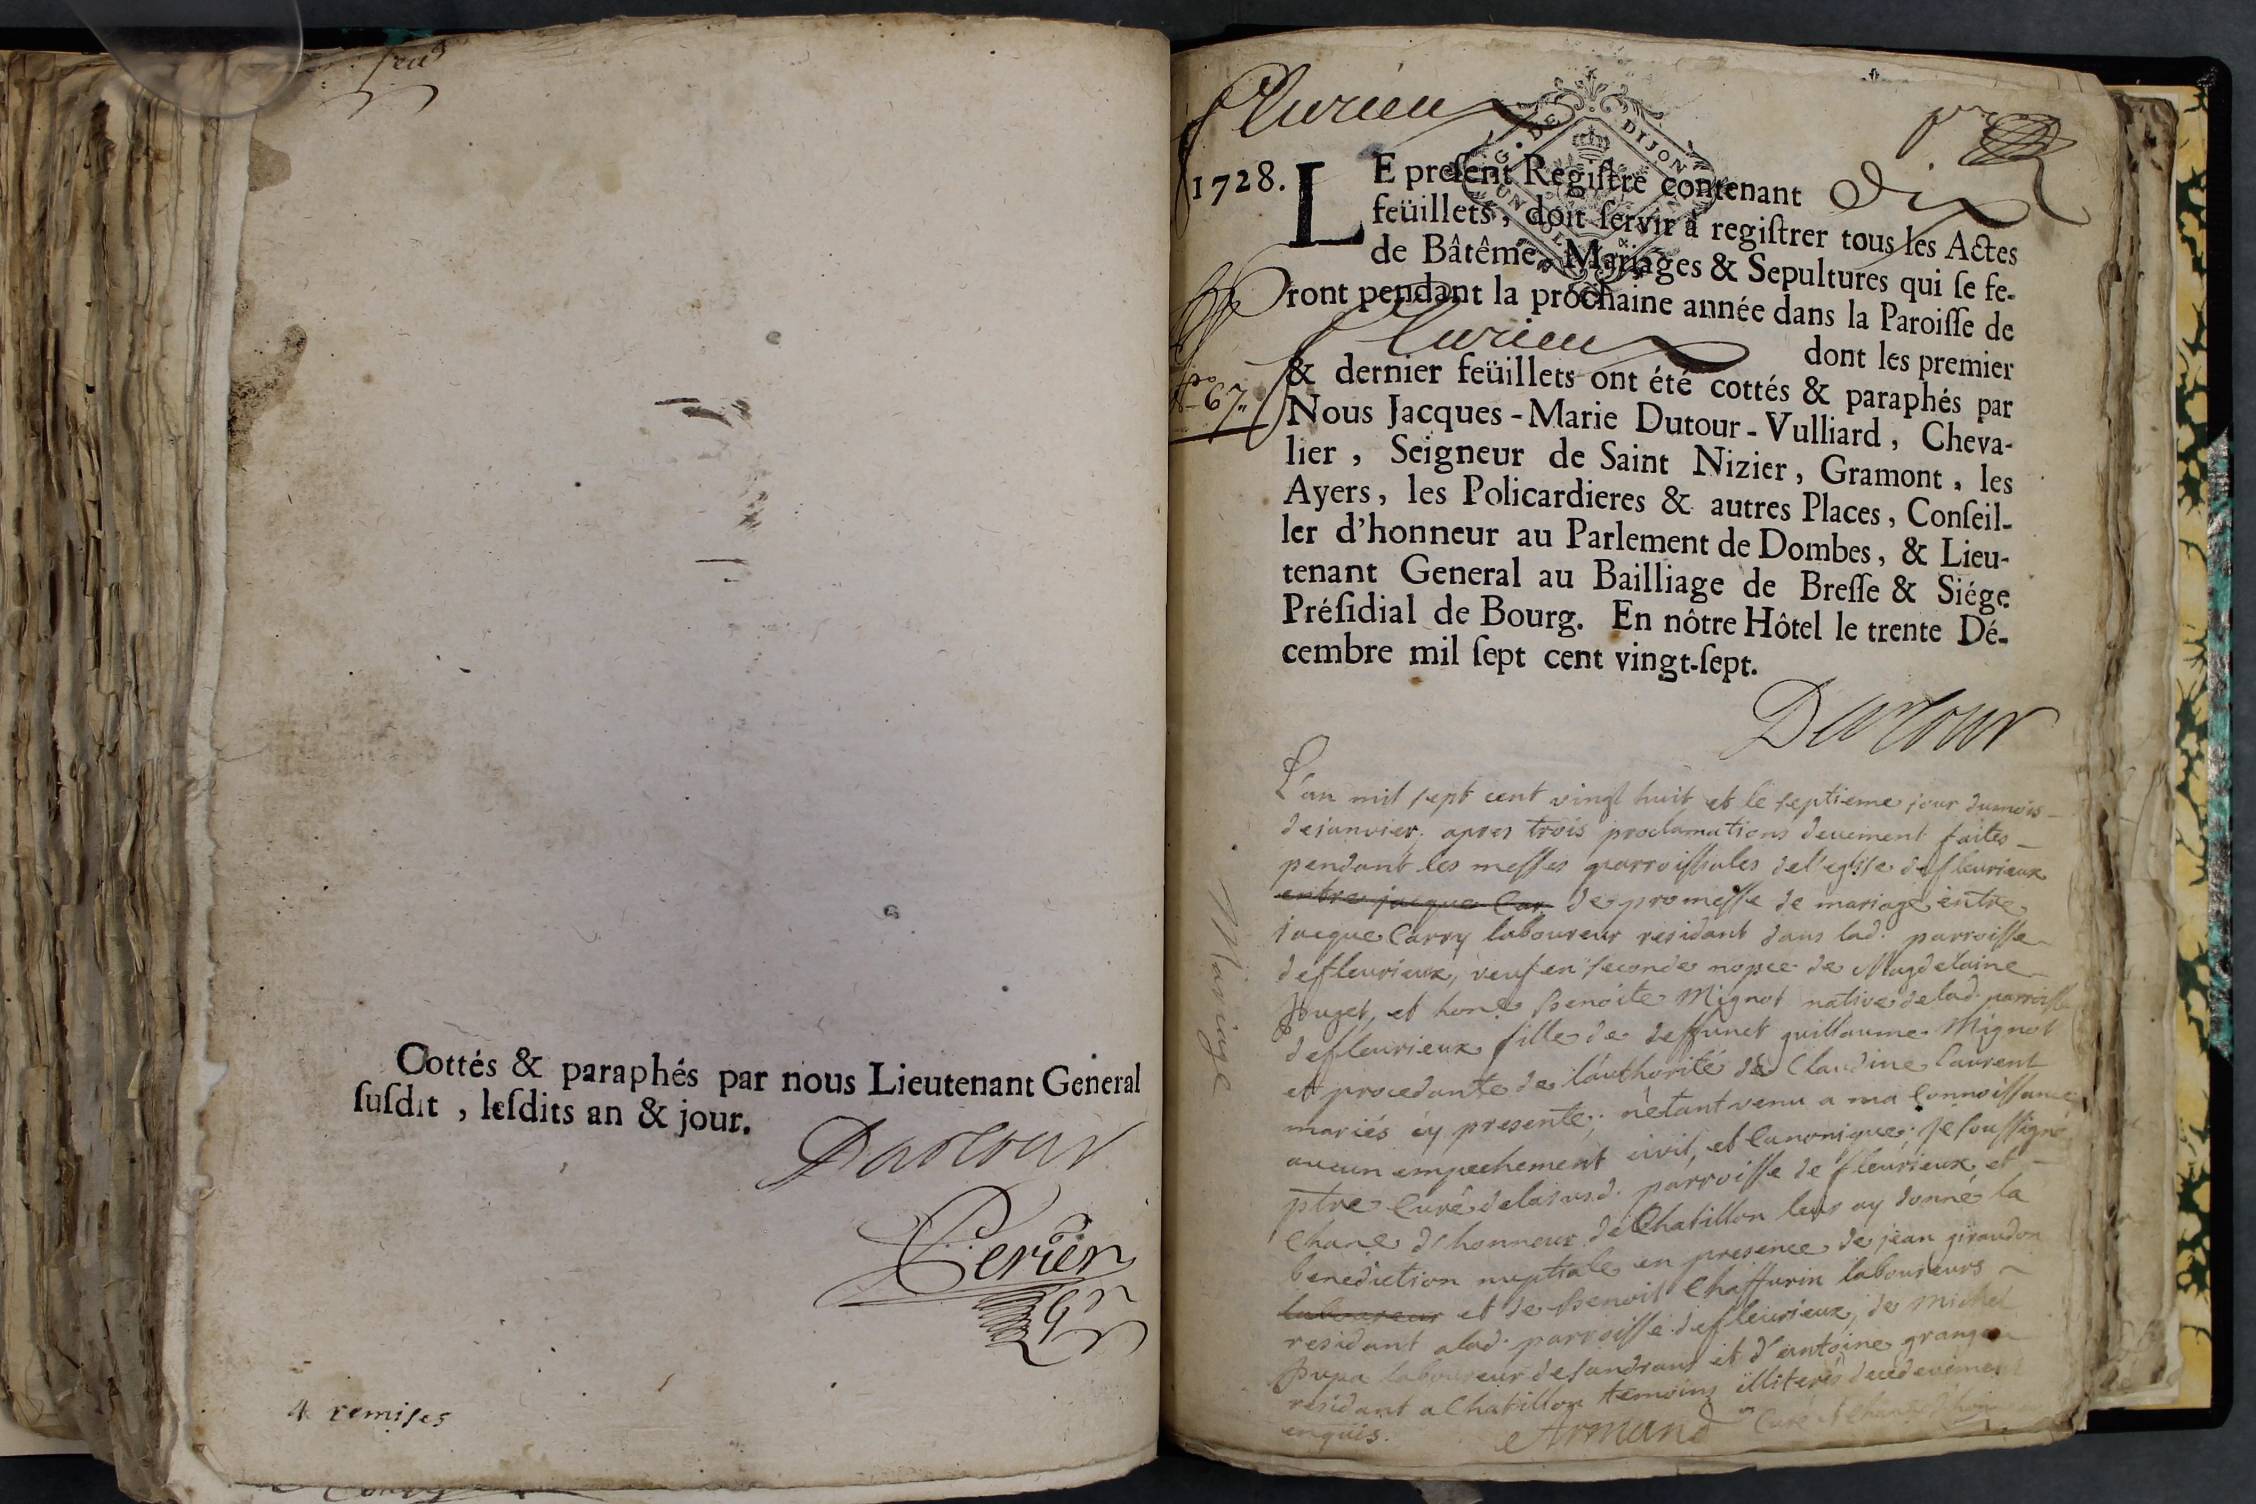 Cottés & paraphés par nous Lieutenant General
susdit, lesdits an & jour.
Dartour
Perier
4 remises
Flurieu
G. DE DIJON
UN
1728. LE present Registre contenant dix
feüillets, doit servir à registrer tous les Actes
de Bâtême, Mariages & Sepultures qui se fe-
ront pendant la prochaine année dans la Paroisse de
Flurieu dont les premier
& dernier feüillets ont été cottés & paraphés par
Nous Jacques-Marie Dutour-Vulliard, Cheva-
lier, Seigneur de Saint Nizier, Gramont, les
Ayers, les Policardieres & autres Places, Conseil-
ler d'honneur au Parlement de Dombes, & Lieu-
tenant General au Bailliage de Bresse & Siége
Présidial de Bourg. En nôtre Hôtel le trente Dé-
cembre mil sept cent vingt-sept.
Dartour
Mariage
L'an mil sept cent vingt huit et le septieme jour du mois
de janvier; apres trois proclamations deuement faites
pendant les messes parroissiales de l'eglse de fleurieux
entre jacque Car de promesse de mariage entre
jacque Carry laboureur residant dans lad. parroisse
de fleurieux, veuf en seconde nopce de Magdelaine
puget, et hone benoite Mignot native de lad. parroisse
de fleurieux fille de deffunct guillaume Mignot
et procedante de l'authorité de Claudine Laurent
mariés cy presente; n'etant venu a ma Connoissance
aucun empechement civil, et Canonique; je soussigné
ptre Curé de la susd. parroisse de fleurieux et
Chane d'honneur de Chatillon leur ay donné la
benediction nuptiale en presence de jean giraudon
laboureur et de benoit Chaffurin laboureurs
residant a lad. parroisse de fleurieux, de Michel
pupa laboureur de sandrans et d'antoine grangea
residant a Chatillon temoins illiterés de ce deuement
enquis. Armand Curé et Chane d'hon